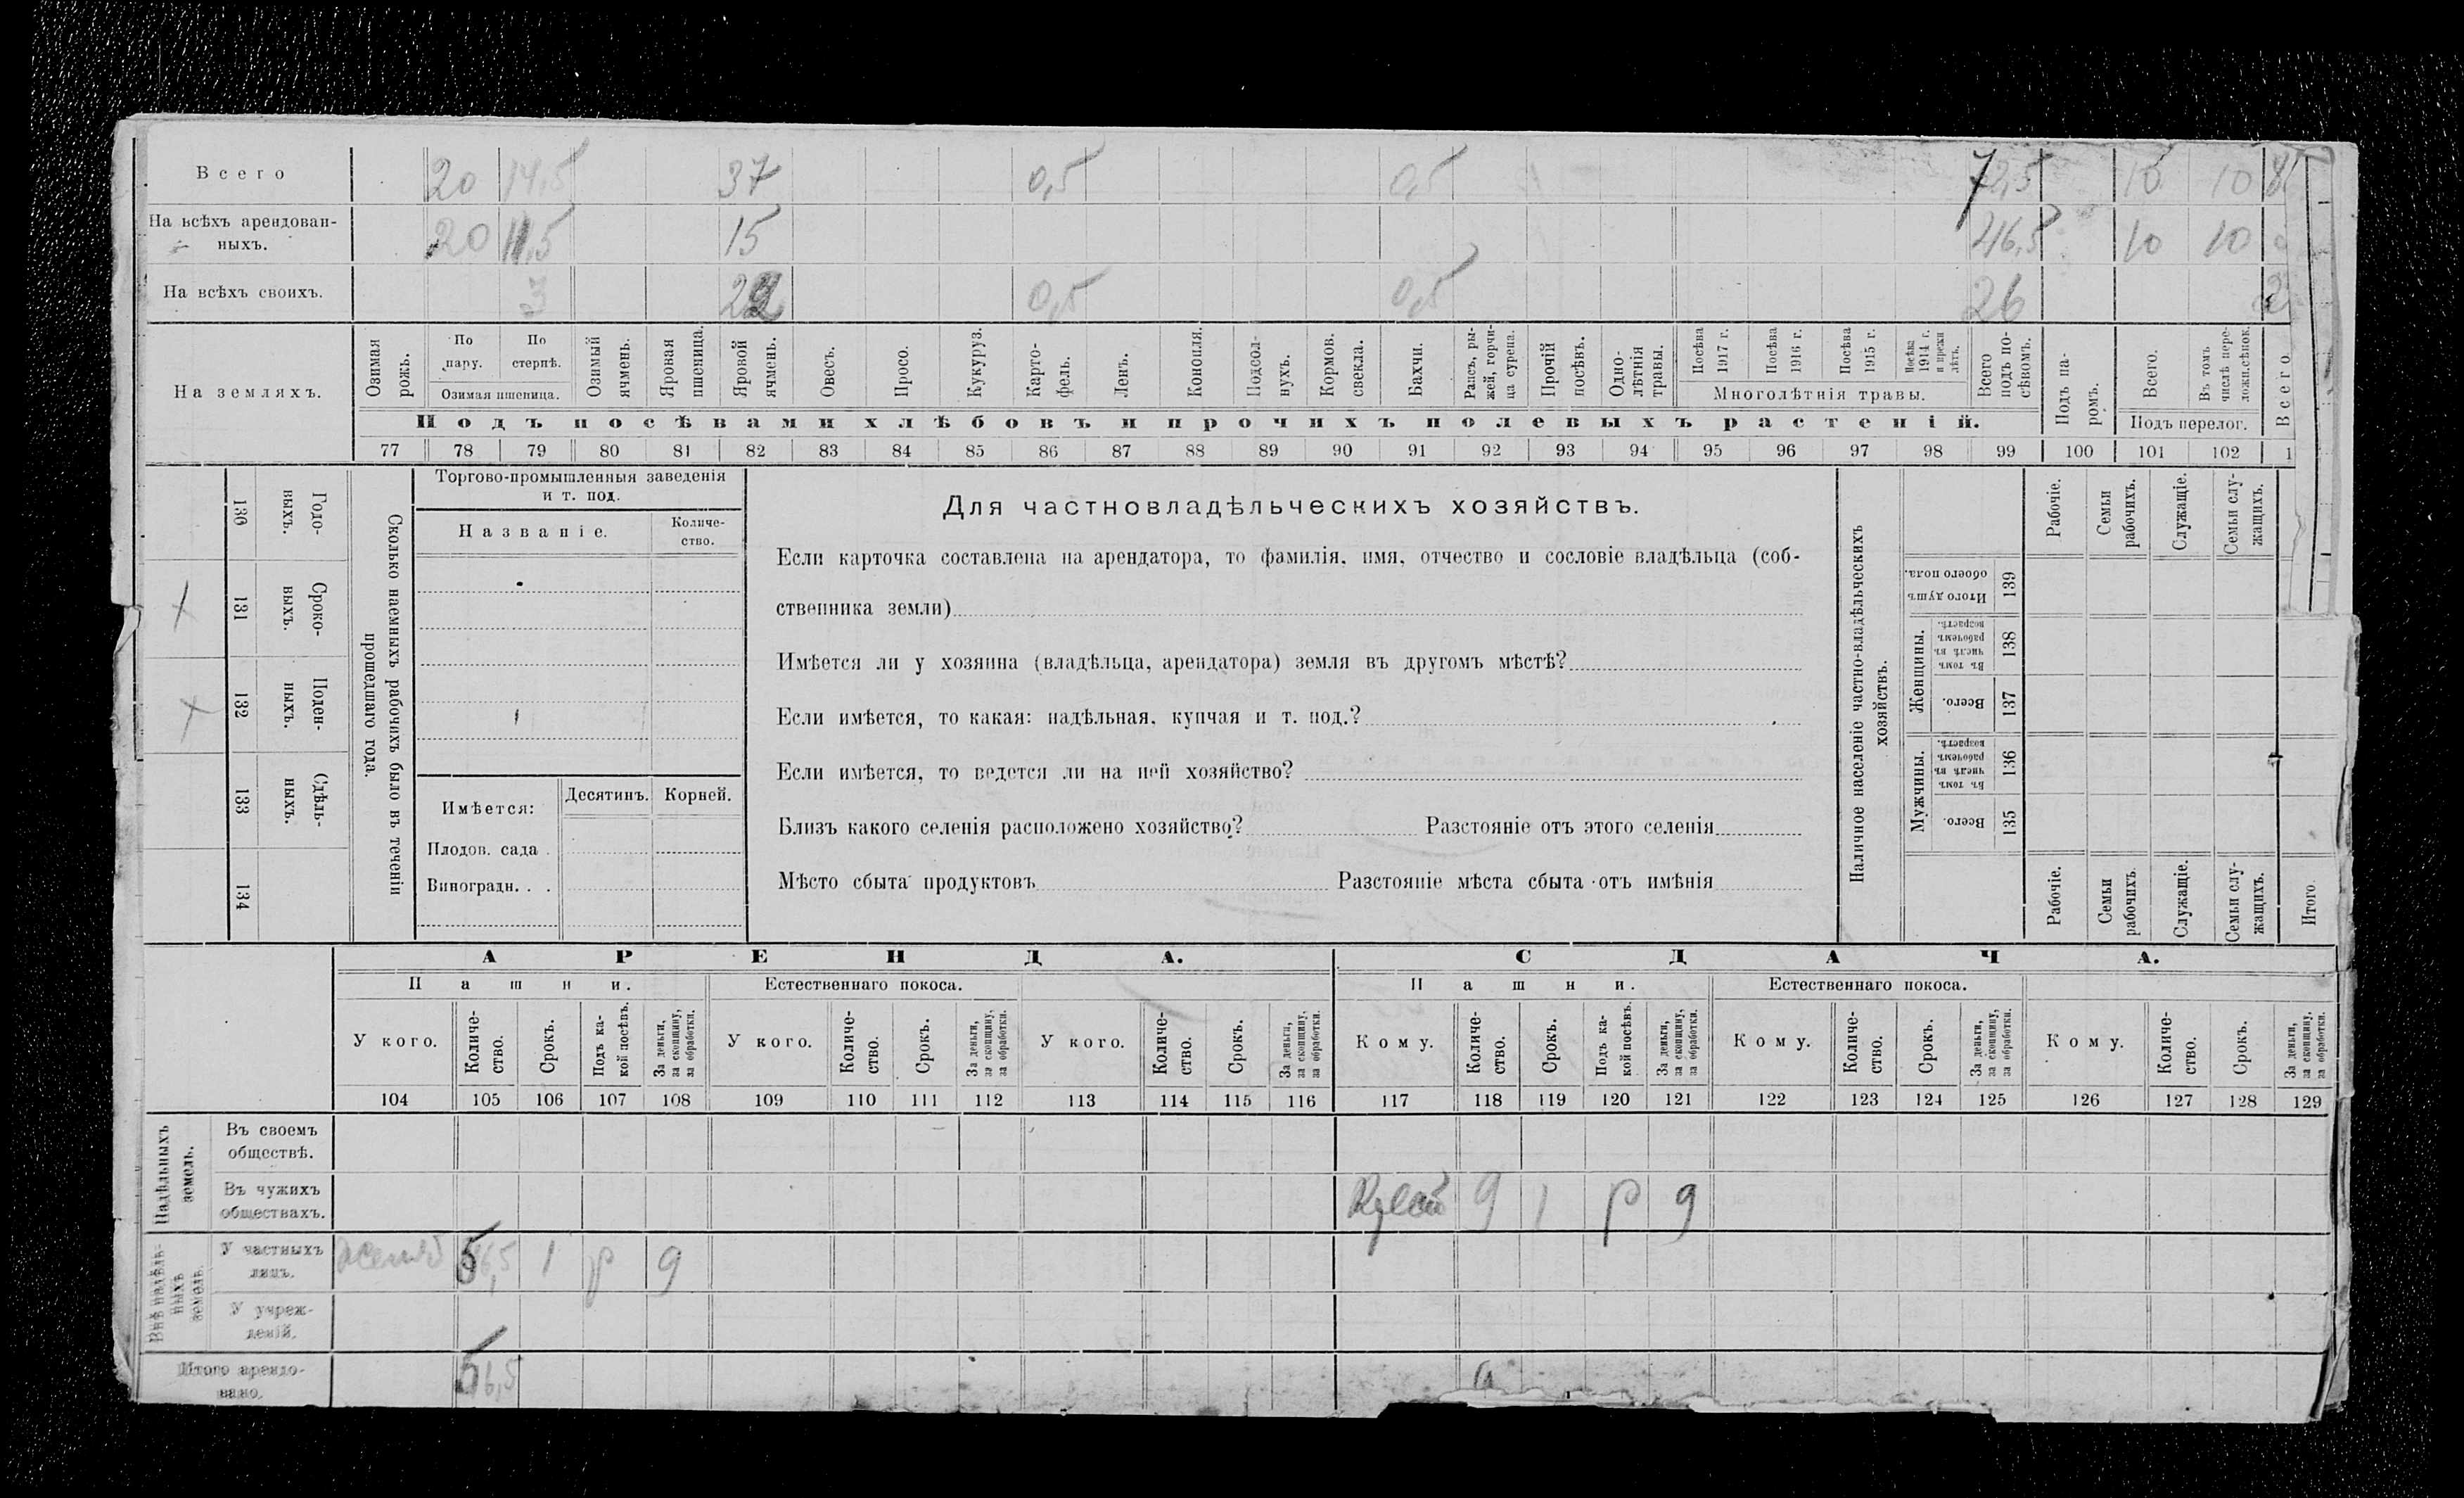 Всего 20 14,5 37 0,5 0,5 72,5 10 10
На всѣхъ арендован-
ныхъ. 20 11,5 15 46,5 10 10
На всѣхъ своихъ. 3 22 0,5 0,5 26
На земляхъ.
Озимая рожь.
По пару.
По стернѣ.
Озимая пшеница.
Озимый ячмень.
Яровая пшеница.
Яровой ячмень.
Овесъ.
Просо.
Кукуруз.
Карто-
фель.
Ленъ.
Конопля.
Подсол-
нухъ.
Кормов. свекла.
Бахчи.
Рапсъ, ры-
жей, горчи-
ца сурепа.
Прочій посѣвъ.
Одно-
лѣтнія травы.
Посѣва 1917 г.
Посѣва 1916 г.
Посѣва 1915 г.
Посѣва 1914 г. и прежн лѣтъ.
Многолѣтнія травы.
Всего подъ по-
сѣвомъ.
Подъ па-
ромъ.
Всего.
Въ томъ числѣ пере-
ложн.сѣнок.
Подъ перелог.
Всего
Подъ посѣвами хлѣбовъ и прочихъ полевыхъ растеній.
77 78 79 80 81 82 83 84 85 86 87 88 89 90 91 92 93 94 95 96 97 98 99 100 101 102 1
Сколько наемныхъ рабочихъ было въ теченіи
прошедшаго года.
Годо-
выхъ.
130
Сроко-
выхъ.
131
Поден-
ныхъ.
132
Сдѣль-
ныхъ.
133
134
Торгово-промышленныя заведенія
и т. под.
Названіе.
Количе-
ство.
Имѣется:
Десятинъ.
Корней.
Плодов. сада .
Виноградн. . .
Для частновладѣльческихъ хозяйствъ.
Если карточка составлена на арендатора, то фамилія, имя, отчество и сословіе владѣльца (соб-
ственника земли)
Имѣется ли у хозяина (владѣльца, арендатора) земля въ другомъ мѣстѣ?
Если имѣется, то какая: надѣльная, купчая и т. под.?
Если имѣется, то ведется ли на ней хозяйство?
Близъ какого селенія расположено хозяйство? Разстояніе отъ этого селенія
Мѣсто сбыта продуктовъ Разстояніе мѣста сбыта отъ имѣнія
Наличное населеніе частно-владѣльческихъ
хозяйствъ.
Рабочіе.
Семьи рабочихъ.
Служащіе.
Семьи слу-
жащихъ.
Итого душъ обоего пола.
139
Женщины.
Въ томъ числѣ въ рабочемъ возрастѣ.
138
Всего.
137
Мужчины.
Въ томъ числѣ въ рабочемъ возрастѣ.
136
Всего.
135
Рабочіе.
Семьи рабочихъ.
Служащіе.
Семьи слу-
жащихъ.
Итого
АРЕНДА.
СДАЧА.
Пашни.
Естественнаго покоса.
Пашни.
Естественнаго покоса.
У кого.
Количе-
ство.
Срокъ.
Подъ ка-
кой посѣвъ.
За деньги, за скопщину, за обработки.
У кого.
Количе-
ство.
Срокъ.
За деньги, за скопщину, за обработки.
У кого.
Количе-
ство.
Срокъ.
За деньги, за скопщину, за обработки.
Кому.
Количе-
ство.
Срокъ.
Подъ ка-
кой посѣвъ.
За деньги, за скопщину, за обработки.
Кому.
Количе-
ство.
Срокъ.
За деньги, за скопщину, за обработки.
Кому.
Количе-
ство.
Срокъ.
За деньги, за скопщину, за обработки.
104 105 106 107 108 109 110 111 112 113 114 115 116 117 118 119 120 121 122 123 124 125 126 127 128 129
Надѣльныхъ земель.
Въ своемъ
обществѣ.
Въ чужихъ
обществахъ. 9 1 р 9
Внѣ надѣль-
ныхъ земель
У частныхъ
лицъ. 56,5 1 р 9
У учреж-
деній.
Итого арендо-
вано. 56,5